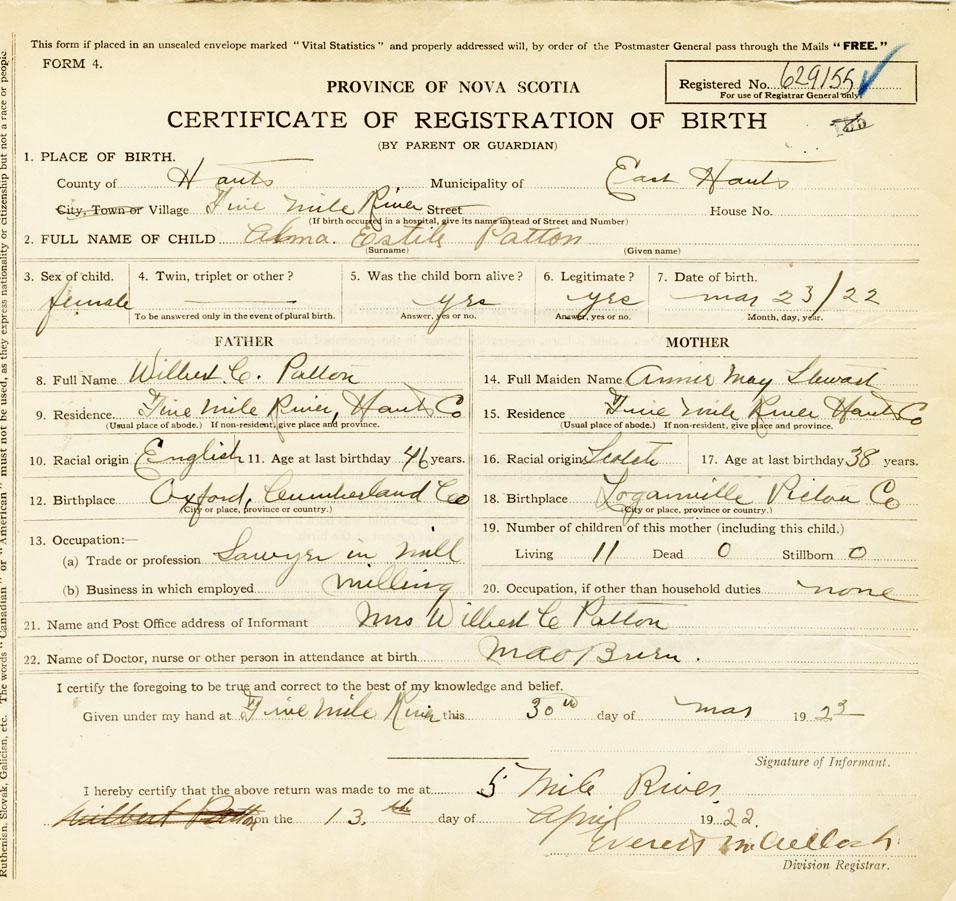 This form if placed in an unsealed envelope marked "Vital Statistics" and properly addressed will, by order of the Postmaster General pass through the Mails "FREE."
FORM 4.
PROVINCE OF NOVA SCOTIA
Registered No. 629155
For use of Registrar General only
CERTIFICATE OF REGISTRATION OF BIRTH
(BY PARENT OR GUARDIAN)
1. PLACE OF BIRTH.
County of Hants Municipality of East Hants
City, Town or Village Five Mile River Street House No.
(If birth occurred in a hospital, give its name instead of Street and Number)
2. FULL NAME OF CHILD Alma. Estile Patton
(Surname) (Given name)
3. Sex of child. 4. Twin, triplet or other? 5. Was the child born alive? 6. Legitimate? 7. Date of birth.
female yes yes mar 23/22
To be answered only in the event of plural birth. Answer, yes or no. Answer, yes or no. Month, day, year.
FATHER MOTHER
8. Full Name Wilbert C. Patton 14. Full Maiden Name Annie May Stewart
9. Residence Five Mile River, Hants Co 15. Residence Five Mile River Hants Co
(Usual place of abode.) If non-resident, give place and province. (Usual place of abode.) If non-resident, give place and province.
10. Racial origin English 11. Age at last birthday 46 years. 16. Racial origin Scotch 17. Age at last birthday 38 years.
12. Birthplace Oxford, Cumberland Co 18. Birthplace Loganville Pictou Co
(City or place, province or country.) (City or place, province or country.)
19. Number of children of this mother (including this child.)
13. Occupation:—
(a) Trade or profession Sawyer in mill Living 11 Dead 0 Stillborn 0
(b) Business in which employed milling 20. Occupation, if other than household duties none
21. Name and Post Office address of Informant Mrs Wilbert C Patton
22. Name of Doctor, nurse or other person in attendance at birth
I certify the foregoing to be true and correct to the best of my knowledge and belief.
Given under my hand at Five Mile River this 30th day of mar 1923
Signature of Informant.
I hereby certify that the above return was made to me at 5 Mile River
Wilbert Patton on the 13.th day of April 1922.
Everett McCulloch
Division Registrar.
Ruthenian, Slovak, Galician, etc. The words "Canadian" or "American" must not be used, as they express nationality or citizenship but not a race or people.